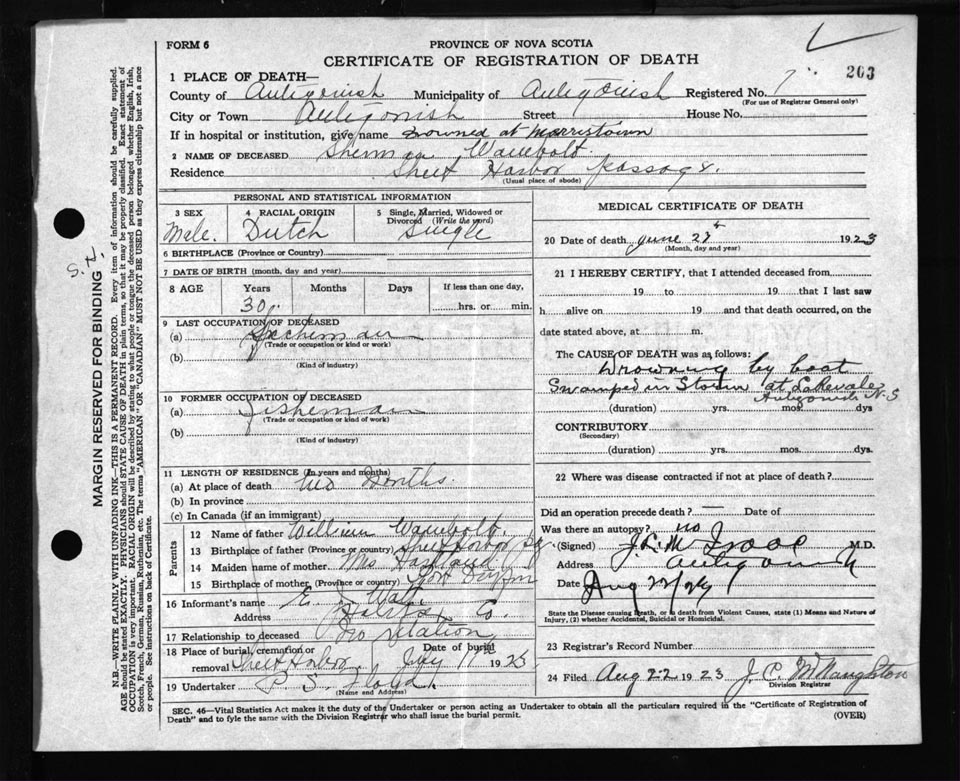 FORM 6
PROVINCE OF NOVA SCOTIA
CERTIFICATE OF REGISTRATION OF DEATH
203
1 PLACE OF DEATH—
County of Antigonish Municipality of Antigonish Registered No. 7
(For use of Registrar General only)
City or Town Antigonish Street House No.
If in hospital or institution, give name Drowned at Morristown
2 NAME OF DECEASED Sherman Wambolt.
Residence Sheet Harbor Passage.
(Usual place of abode)
PERSONAL AND STATISTICAL INFORMATION
3 SEX
Male.
4 RACIAL ORIGIN
Dutch
5 Single, Married, Widowed or Divorced (Write the word)
Single
6 BIRTHPLACE (Province or Country)
7 DATE OF BIRTH (month, day and year)
8 AGE Years Months Days If less than one day,
30 hrs. or min.
9 LAST OCCUPATION OF DECEASED
(a) Fisherman
(Trade or occupation or kind or work)
(b)
(Kind of industry)
10 FORMER OCCUPATION OF DECEASED
(a) Fisherman
(Trade or occupation or kind or work)
(b)
(Kind of industry)
11 LENGTH OF RESIDENCE (In years and months)
(a) At place of death two Months.
(b) In province
(c) In Canada (if an immigrant)
Parents
12 Name of father William Wambolt.
13 Birthplace of father (Province or country) Sheet Harbor
14 Maiden name of mother Mrs
15 Birthplace of mother (Province or country) Port
16 Informant's name E.
Address Halifax Co.
17 Relationship to deceased No relation
18 Place of burial, cremation or removal Sheet Harbor Date of burial July 1923
19 Undertaker P. S. Floyd.
(Name and Address)
MEDICAL CERTIFICATE OF DEATH
20 Date of death June 1923
(Month, day and year)
21 I HEREBY CERTIFY, that I attended deceased from
19 to 19 that I last saw
h alive on 19 and that death occurred, on the
date stated above, at m.
The CAUSE OF DEATH was as follows:
Drowning by boat
Swamped in Storm at Lakevale
Antigonish N.S
(duration) yrs. mos. dys
CONTRIBUTORY
(Secondary)
(duration) yrs. mos. dys.
22 Where was disease contracted if not at place of death?
Did an operation precede death? — Date of
Was there an autopsy? no
(Signed) M.D.
Address Antigonish
Date Aug
State the Disease causing Death, or in death from Violent Causes, state (1) Means and Nature of
Injury, (2) whether Accidental, Suicidal or Homicidal.
23 Registrar's Record Number
24 Filed Aug 22 1923 J. C. McNaughton
Division Registrar
SEC. 46—Vital Statistics Act makes it the duty of the Undertaker or person acting as Undertaker to obtain all the particulars required in the "Certificate of Registration of
Death" and to fyle the same with the Division Registrar who shall issue the burial permit.
(OVER)
MARGIN RESERVED FOR BINDING
N.B.—WRITE PLAINLY WITH UNFADING INK—THIS IS A PERMANENT RECORD. Every item of information should be carefully supplied.
AGE should be stated EXACTLY. PHYSICIANS should STATE CAUSE OF DEATH in plain terms, so that it may be properly classified. Exact statement of
OCCUPATION is very important. RACIAL ORIGIN will be described by stating to what people or tongue the deceased person belonged whether English, Irish,
Scotch, French, German, Russian, Ruthenian, etc. The terms "AMERICAN" OR "CANADIAN" MUST NOT BE USED as they express citizenship but not a race
or people. See instructions on back of Certificate.